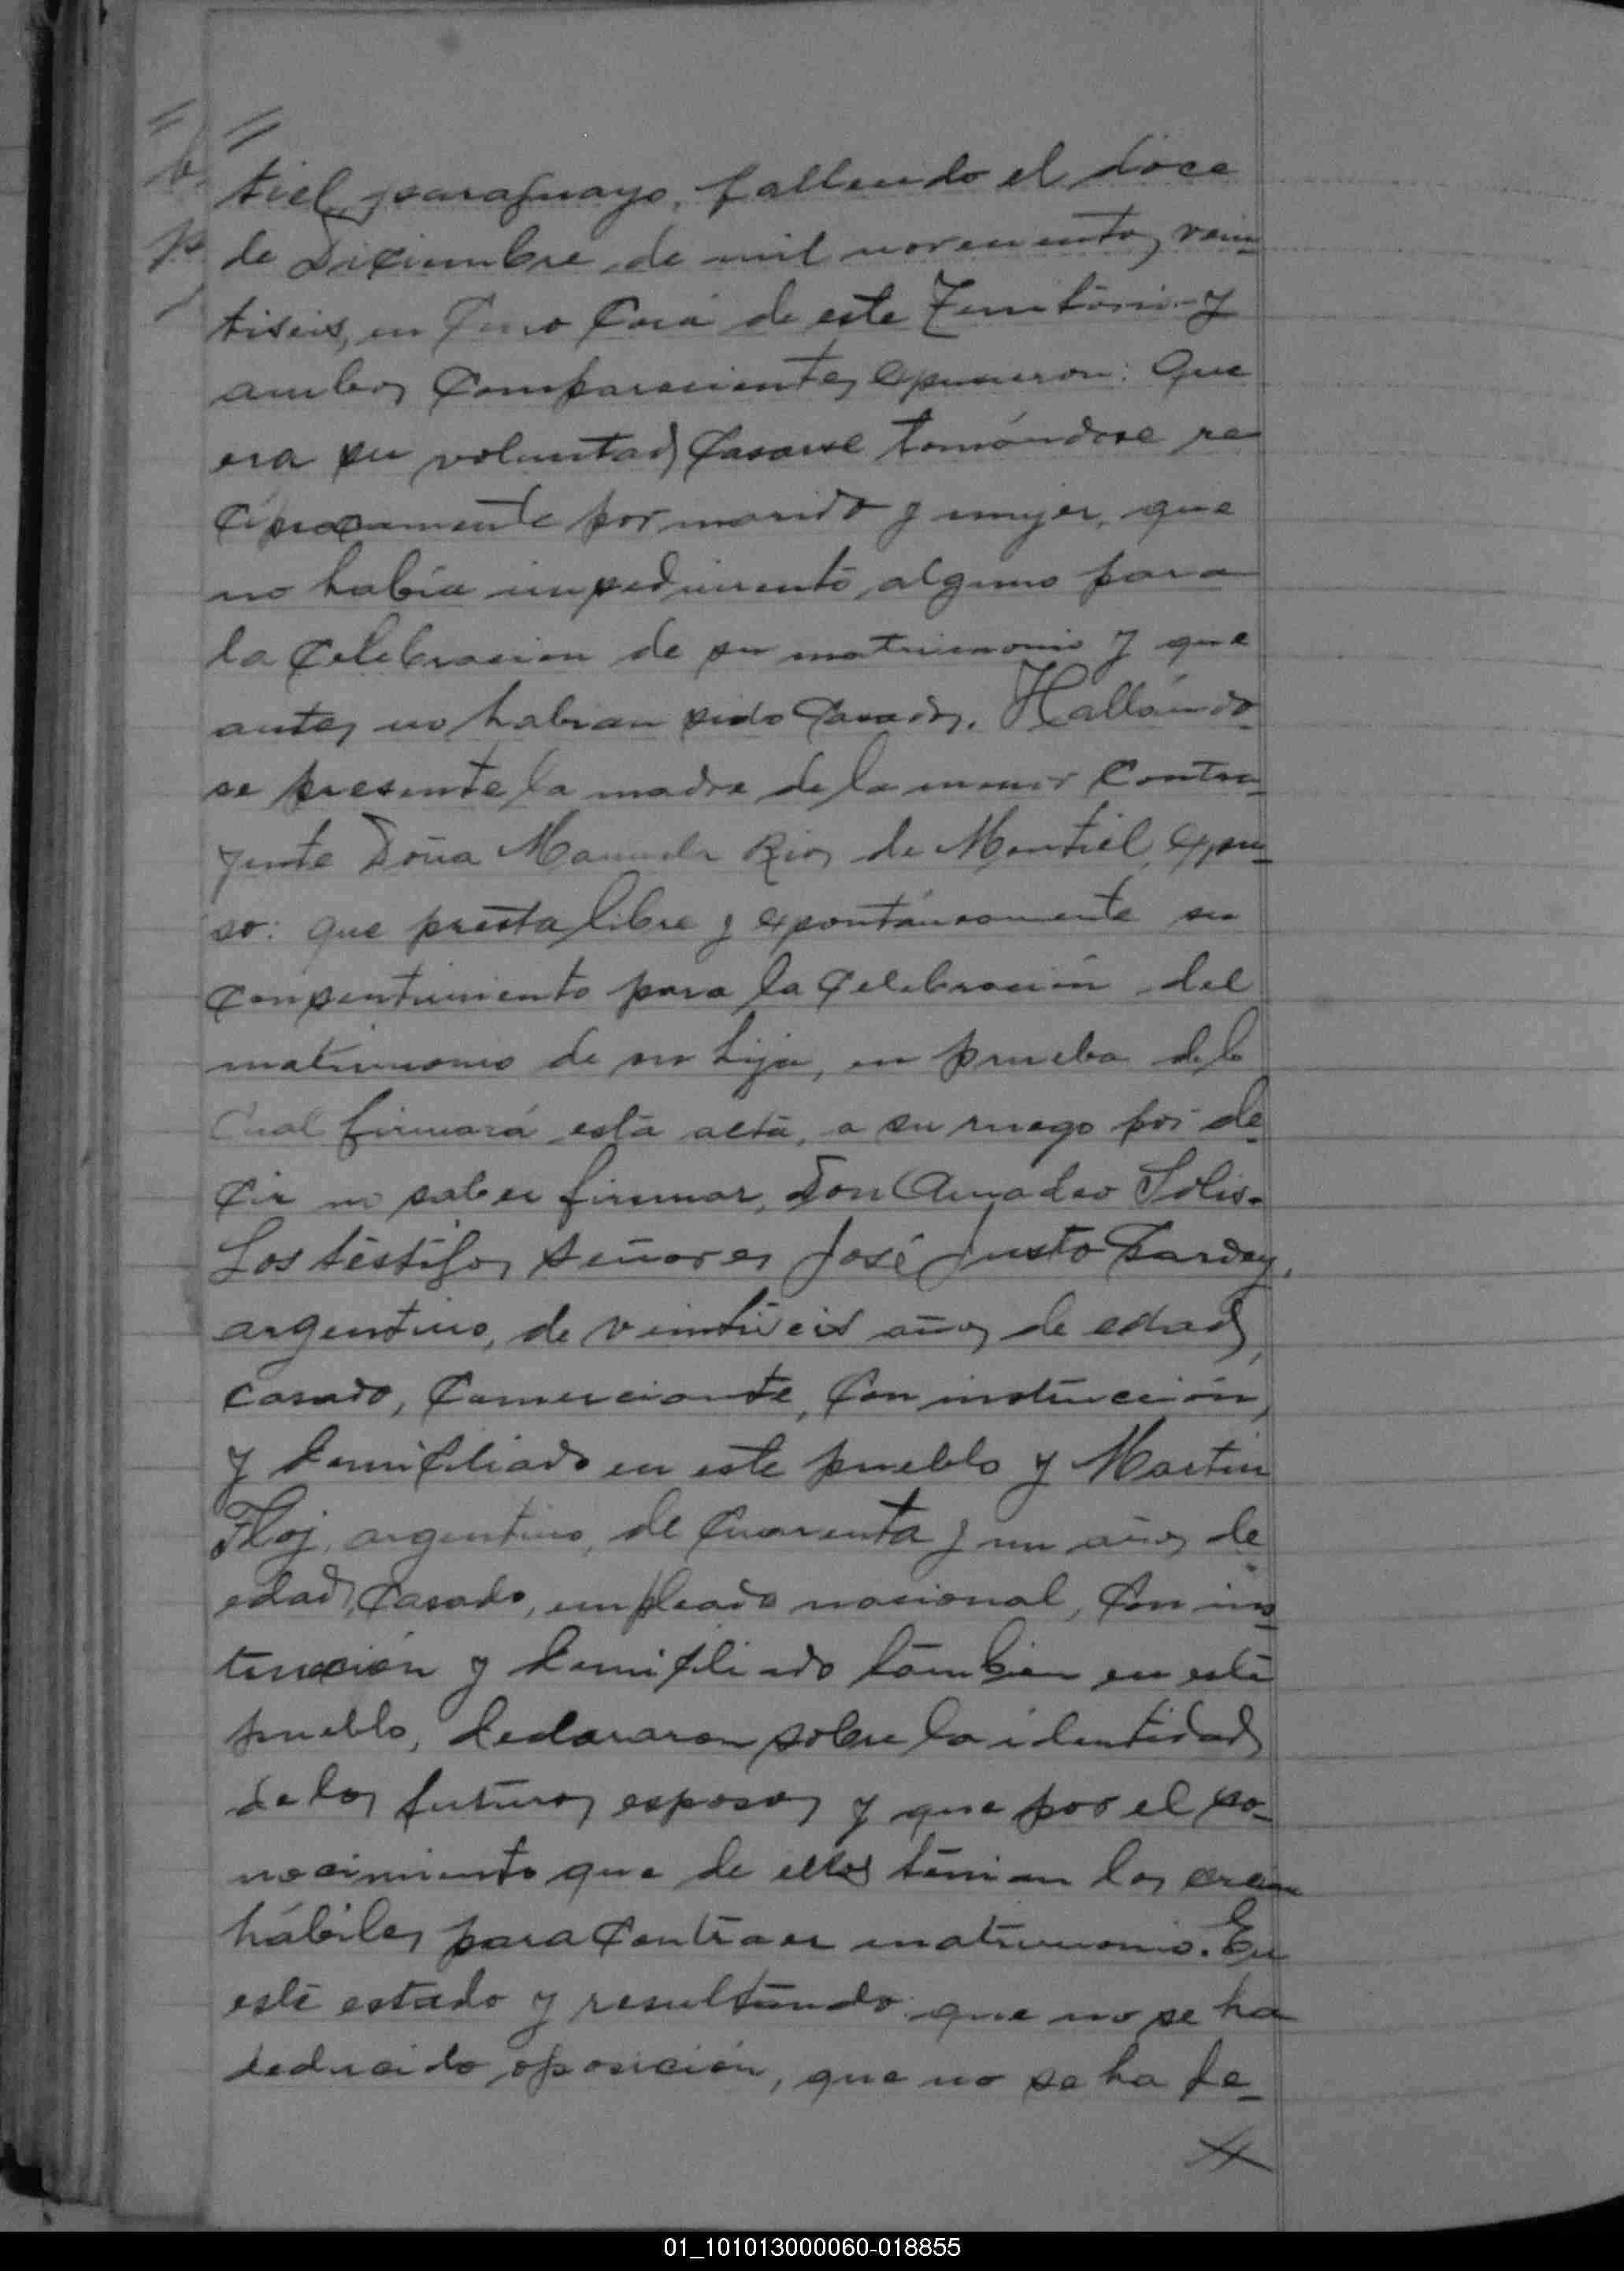 tiel, paraguayo, fallecido el doce
de Diciembre de mil novecientos vein
tiseis, en Cerro Corá de este Territorio y
ambos Comparecientes expusieron: Que
era su voluntad Casarse tomándose re
ciprocamente por marido y mujer, que
no había impedimento alguno para
la Celebracion de su matrimonio y que
antes no habian sido Casados. Hallándo
se presente la madre de la menor Contra-
yente Doña Manuela Rios de Montiel, expu-
so: que presta libre y espontáneamente su
Consentimiento para la Celebración del
matrimonio de su hija, en prueba de lo
Cual firmará esta acta, a su ruego por de
cir no saber firmar, Don Amadeo Solis.
Los testigos señores José Justo
argentino, de veintiseis años de edad,
casado, Comerciante, Con instrucción,
y domiciliado en este pueblo y Martin
argentino, de Cuarenta y un años de
edad, Casado, empleado nacional, Con ins
trucción y domiciliado tambien en este
pueblo, declararon sobre la identidad
de los futuros esposos y que por el co-
nocimiento que de ellos tenian los creian
hábiles para Contraer matrimonio. En
este estado y resultando que no se ha
deducido oposición, que no se ha de-
01_101013000060-018855